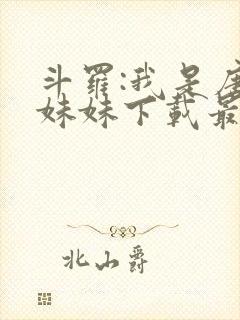 斗罗:我是唐
妹妹下载最
北山爵